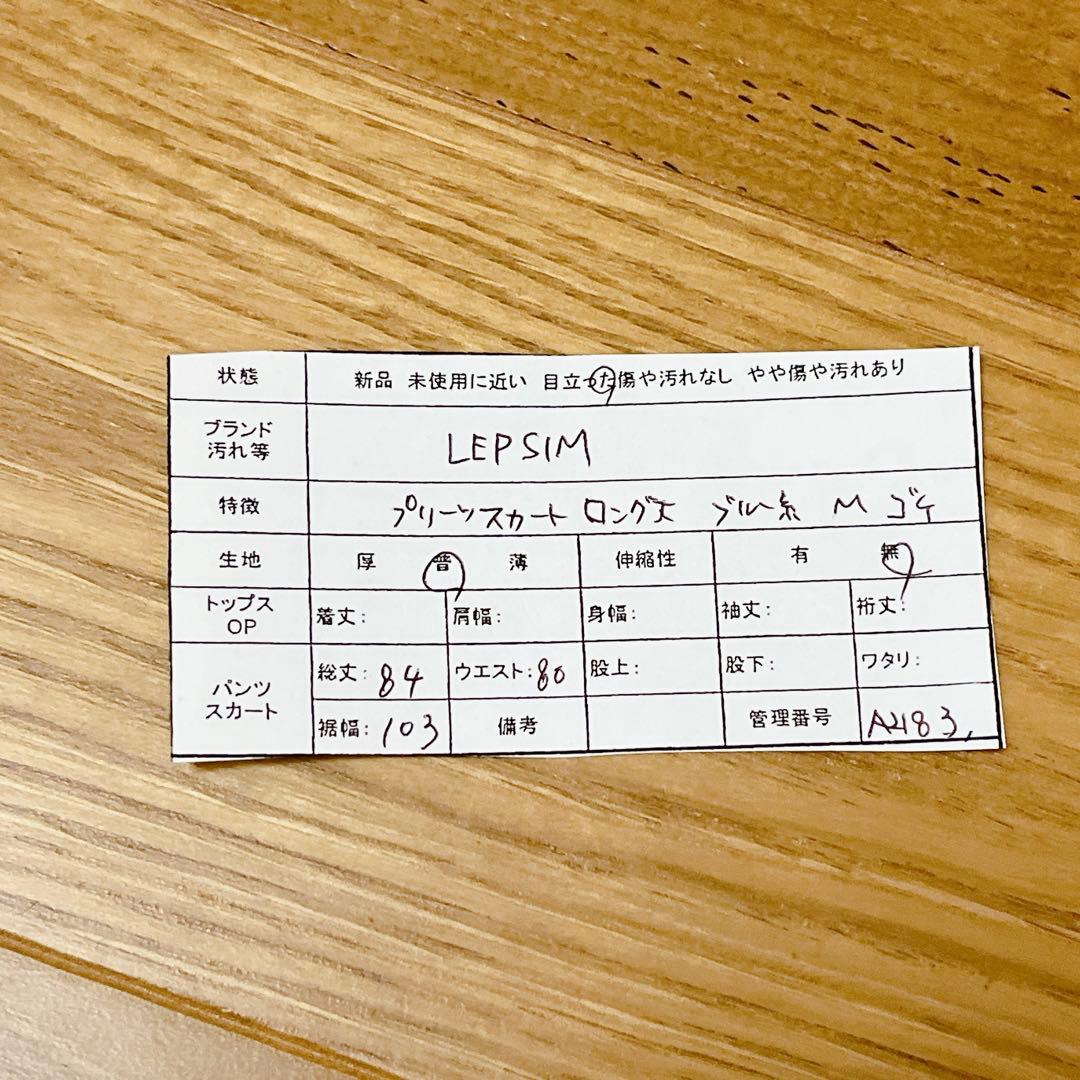 状態 新品 未使用に近い 目立った傷や汚れなし やや傷や汚れあり
ブランド
汚れ等
LEPSIM
特徴 プリーツスカート ロング丈 ブルー系 M
生地 厚 普 薄 伸縮性 有 無
トップス
OP
着丈: 肩幅: 身幅: 袖丈: 裄丈:
パンツ
スカート
総丈: 84 ウエスト: 80 股上: 股下: ワタリ:
裾幅: 103 備考 管理番号 A2183